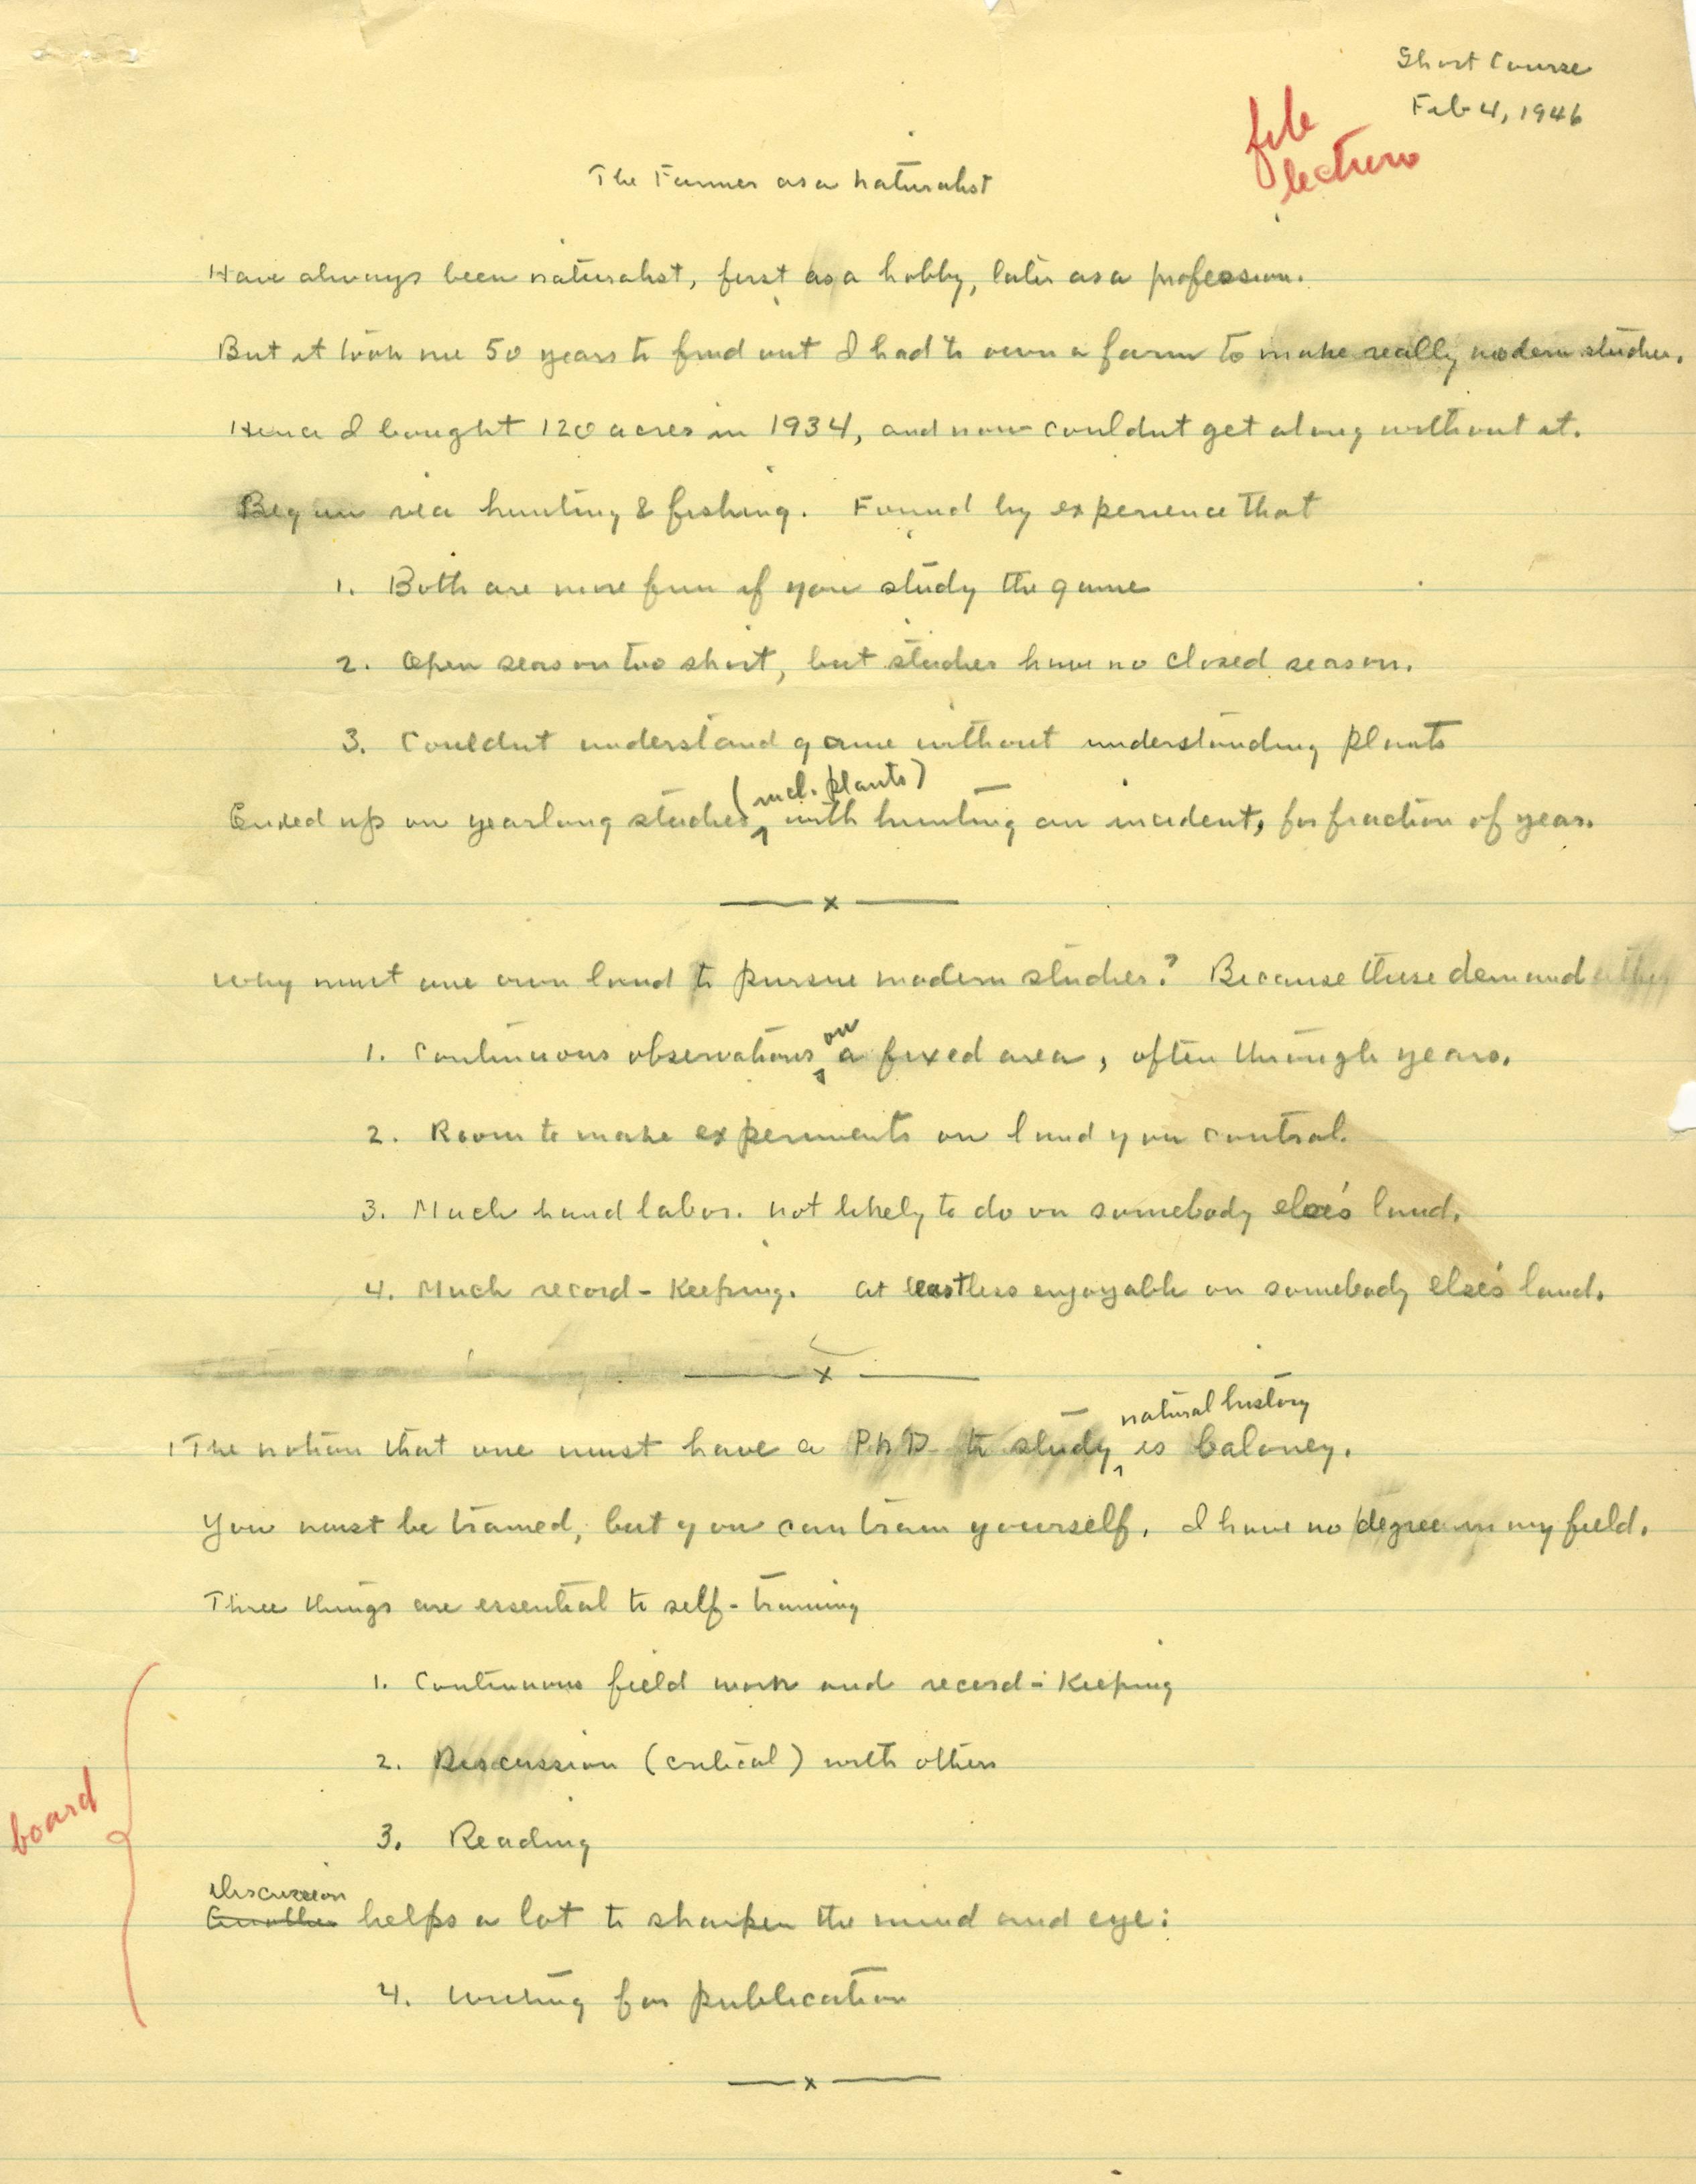 Short Course
Feb 4, 1946
file
lecture
The Farmer as a Naturalist
Have always been naturalist, first as a hobby, later as a profession.
But it took me 50 years to find out I had to own a farm to make really modern studies.
Hence I bought 120 acres in 1934, and now couldnt get along without it.
Began via hunting & fishing. Found by experience that
1. Both are more fun if you study the game
2. Open season too short, but studies have no closed season.
3. Couldnt understand game without understanding plants
(incl. plants)
Ended up on yearlong studies with hunting an incident, for fraction of year.
x
Why must one own land to pursue modern studies? Because these demand
on
1. Continuous observations a fixed area, often through years.
2. Room to make experiments on land you control.
3. Much hand labor. Not likely to do on somebody else's land.
4. Much record-keeping. At least less enjoyable on somebody else's land.
x
natural history
The notion that one must have a PhD to study is baloney.
You must be trained, but you can train yourself. I have no degree in my field.
Three things are essential to self-training
1. Continuous field work and record-keeping
2. Discussion (critical) with others
board
3. Reading
Discussion
Another helps a lot to sharpen the mind and eye:
4. Writing for publication
x